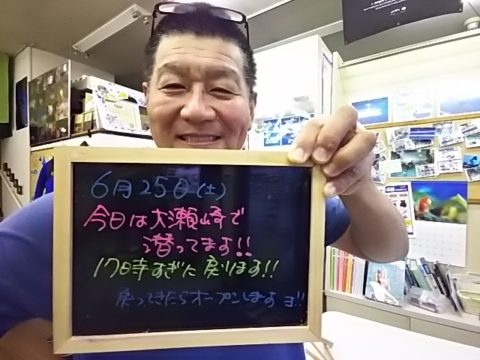 6月25日(土)
今日は大瀬崎で
潜ってます!!
17時すぎに戻ります!!
戻ってきたらオープンしますヨ!!